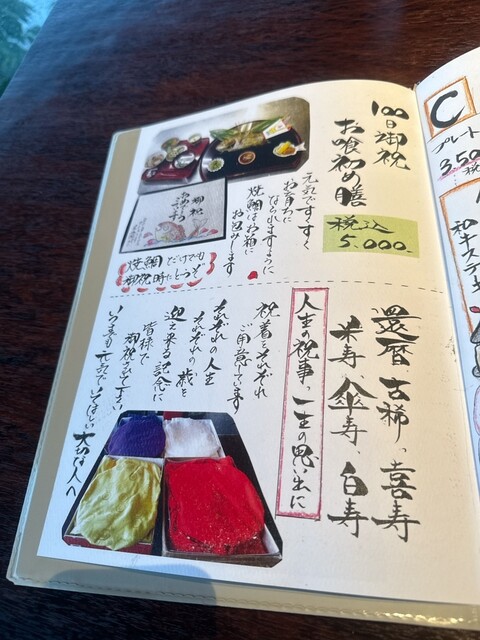 100日御祝
お喰初め膳
税込
5.000.
元気ですくすく
お育ちに
なられますように
焼鯛はお箱に
お包みします
御祝
おめでとう
焼鯛だけでも
御祝時にどうぞ
還暦、古稀、喜寿
米寿、傘寿、白寿
人生の祝事、一生の思い出に
祝着をそれぞれ
ご用意しています
それぞれの人生
それぞれの歳を
迎え来る記念に
皆様で
御祝いして下さい
いつまでも元気でいてほしい大切な人へ
C
プレート
350
税
和牛ステーキ